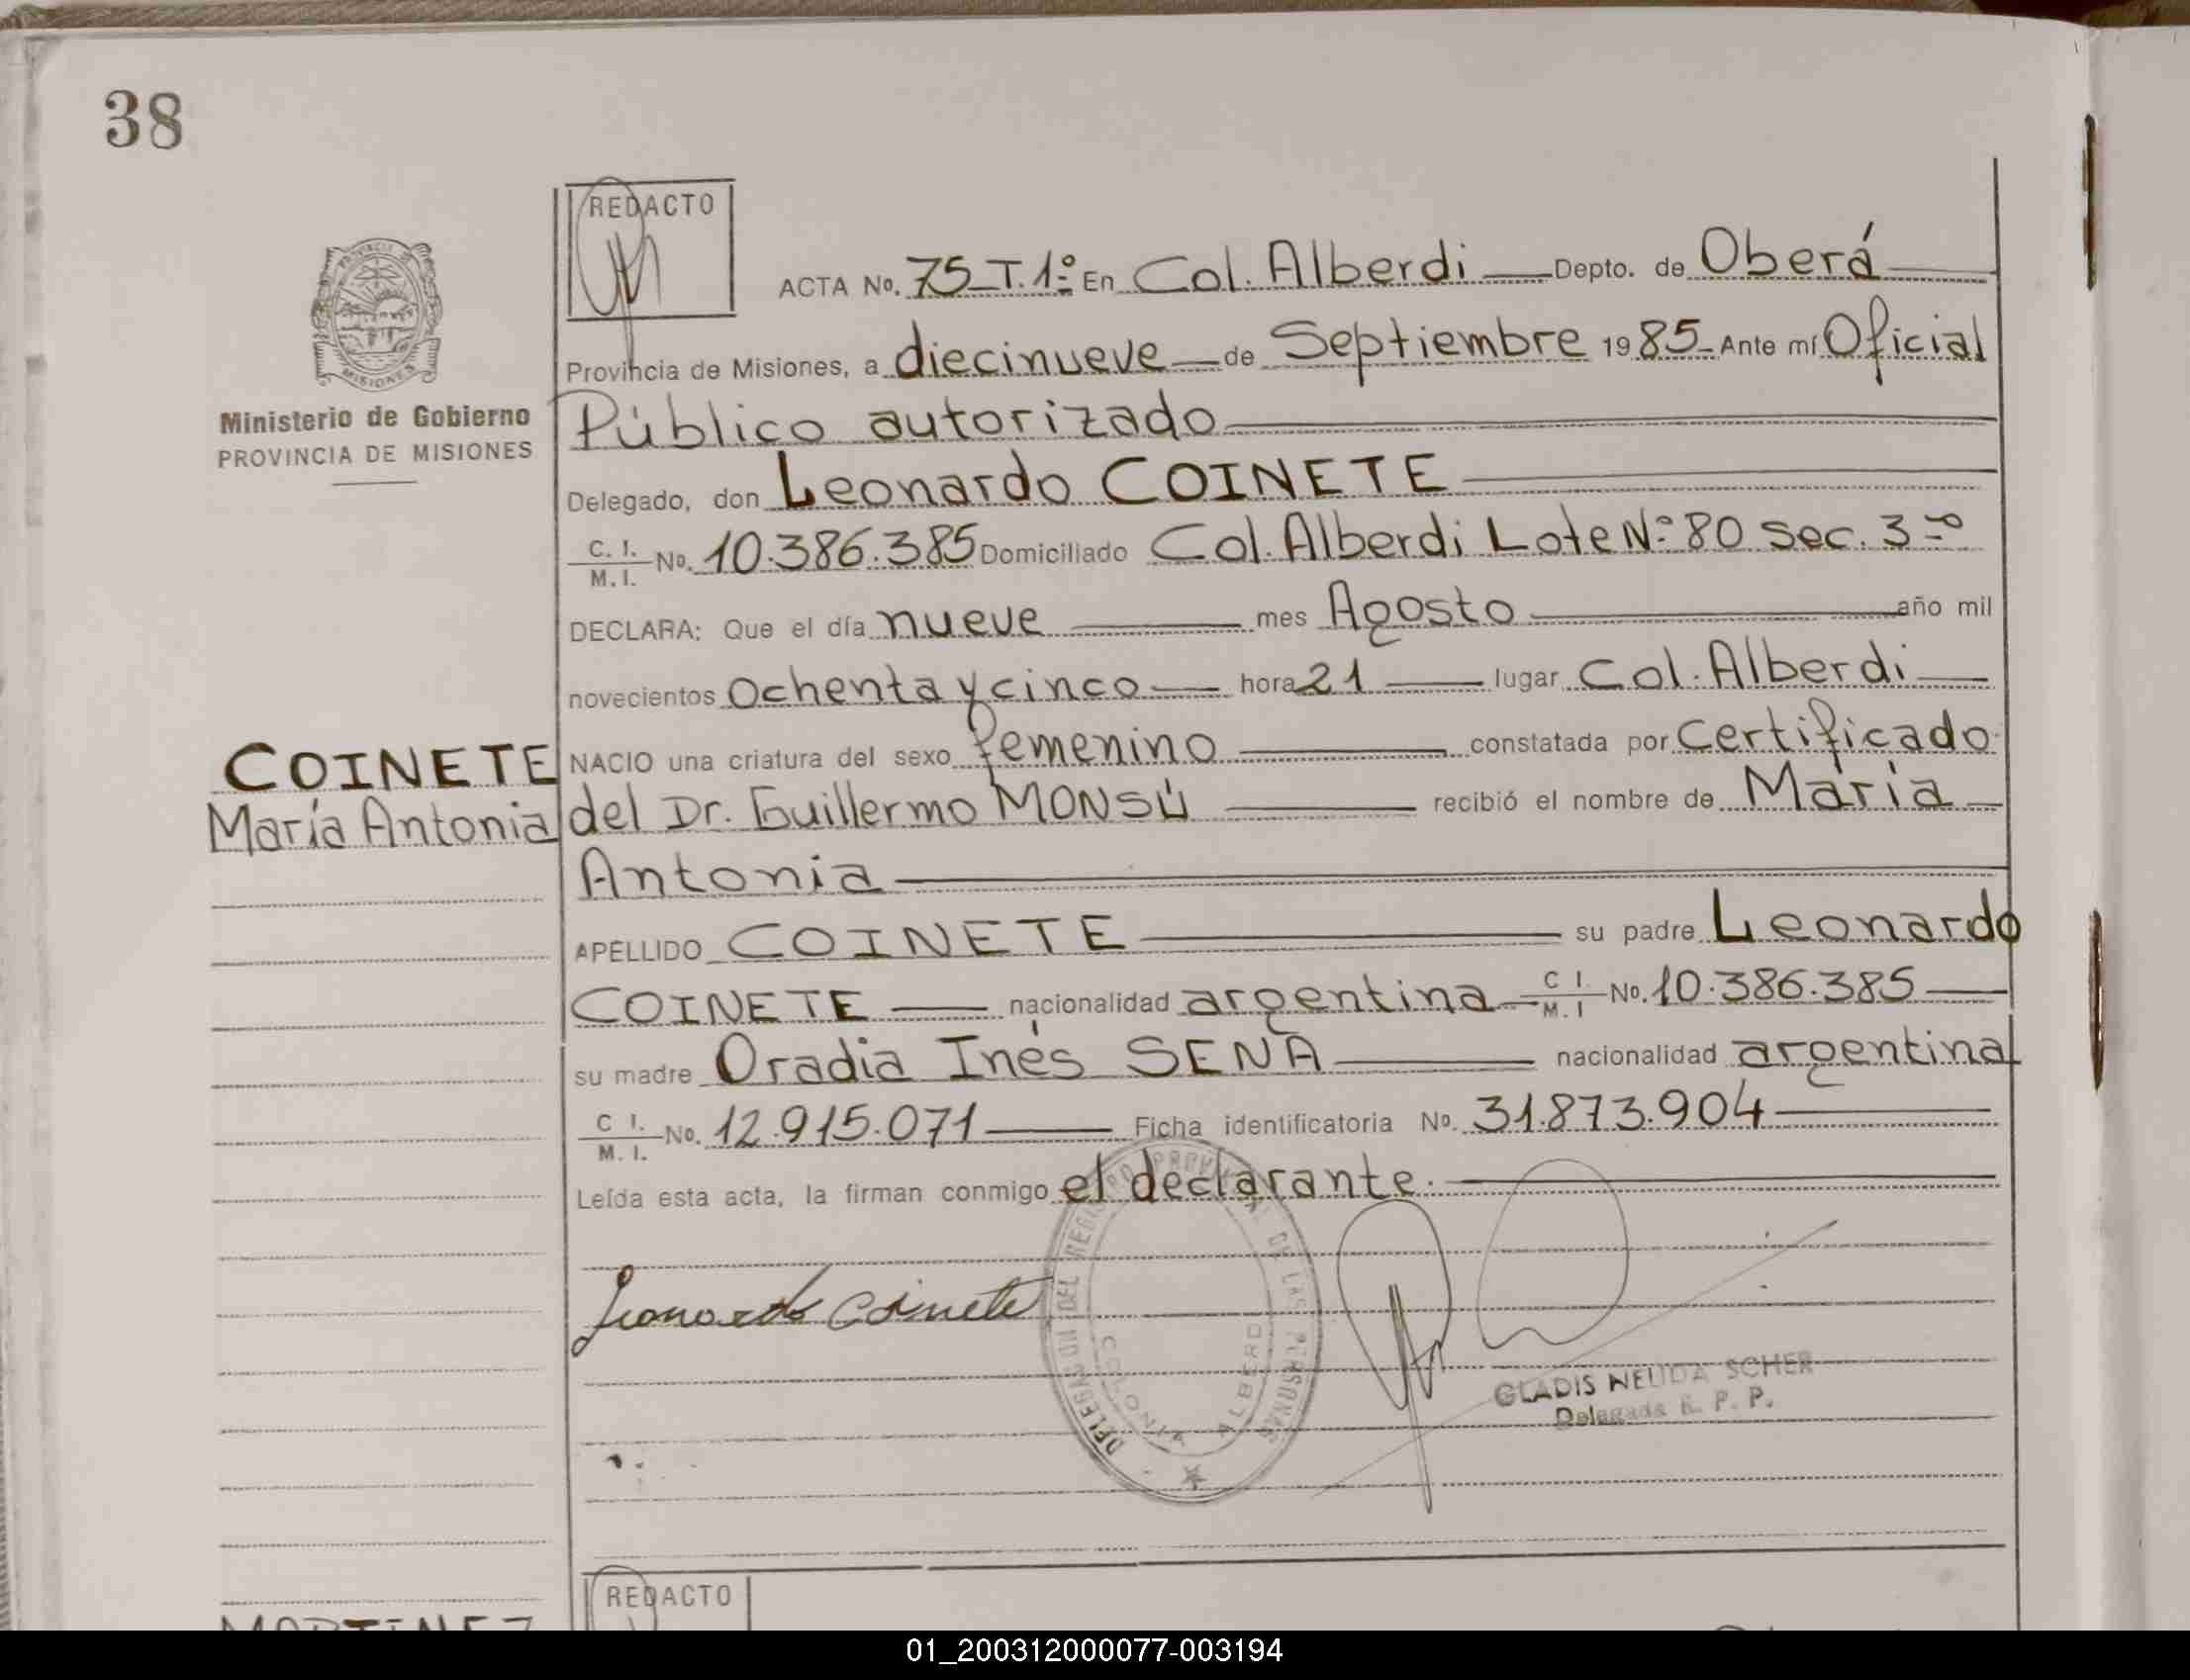 38
REDACTO
PROVINCIA DE
MISIONES
Ministerio de Gobierno
PROVINCIA DE MISIONES
ACTA No. 75_T.1º En Col. Alberdi Depto. de Oberá
Provincia de Misiones, a diecinueve de Septiembre 1985 Ante mí Oficial
Público autorizado
Delegado, don Leonardo COINETE
C. I. / M. I. No. 10.386.385 Domiciliado Col. Alberdi Lote Nº 80 Sec. 3º
DECLARA: Que el día nueve mes Agosto año mil
novecientos Ochenta y cinco hora 21 lugar Col. Alberdi
COINETE
María Antonia
NACIO una criatura del sexo femenino constatada por Certificado
del Dr. Guillermo MONSÚ recibió el nombre de María
Antonia
APELLIDO COINETE su padre Leonardo
COINETE nacionalidad argentina C I. / M. I No. 10.386.385
su madre Oradia Inés SENA nacionalidad argentina
C I. / M. I. No. 12.915.071 Ficha identificatoria No. 31.873.904
Leída esta acta, la firman conmigo el declarante.
Leonardo Coinete
DELEGACION DEL REGISTRO PROVINCIAL DE LAS PERSONAS
COLONIA ALBERDI
GLADIS NELIDA SCHER
Delegada R. P. P.
REDACTO
MARTINEZ
01_200312000077-003194